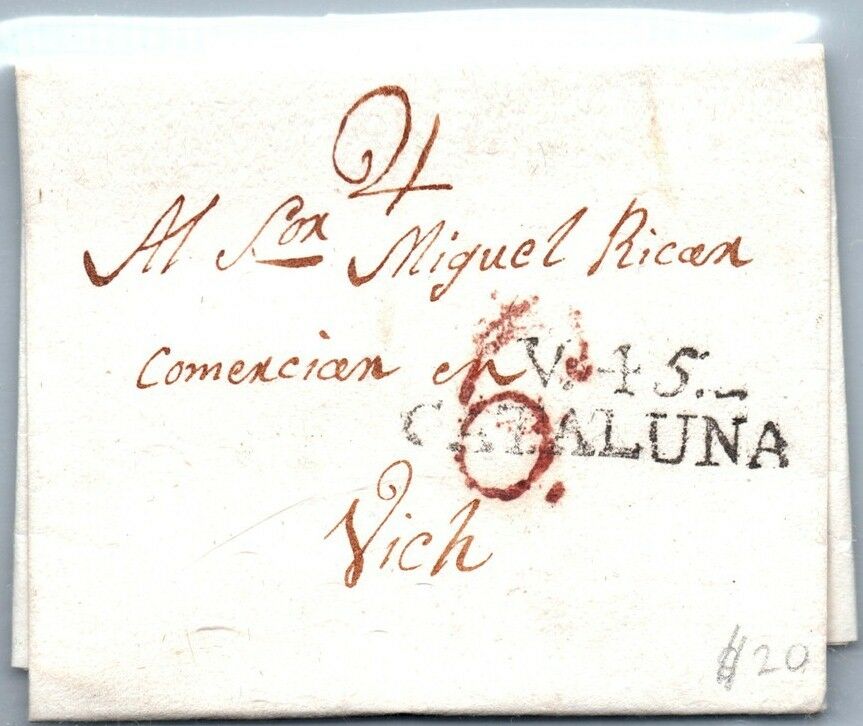 Al Sor Miguel Rican
comercian en
V. 4 5.
CATALUNA
6.
Vich
20